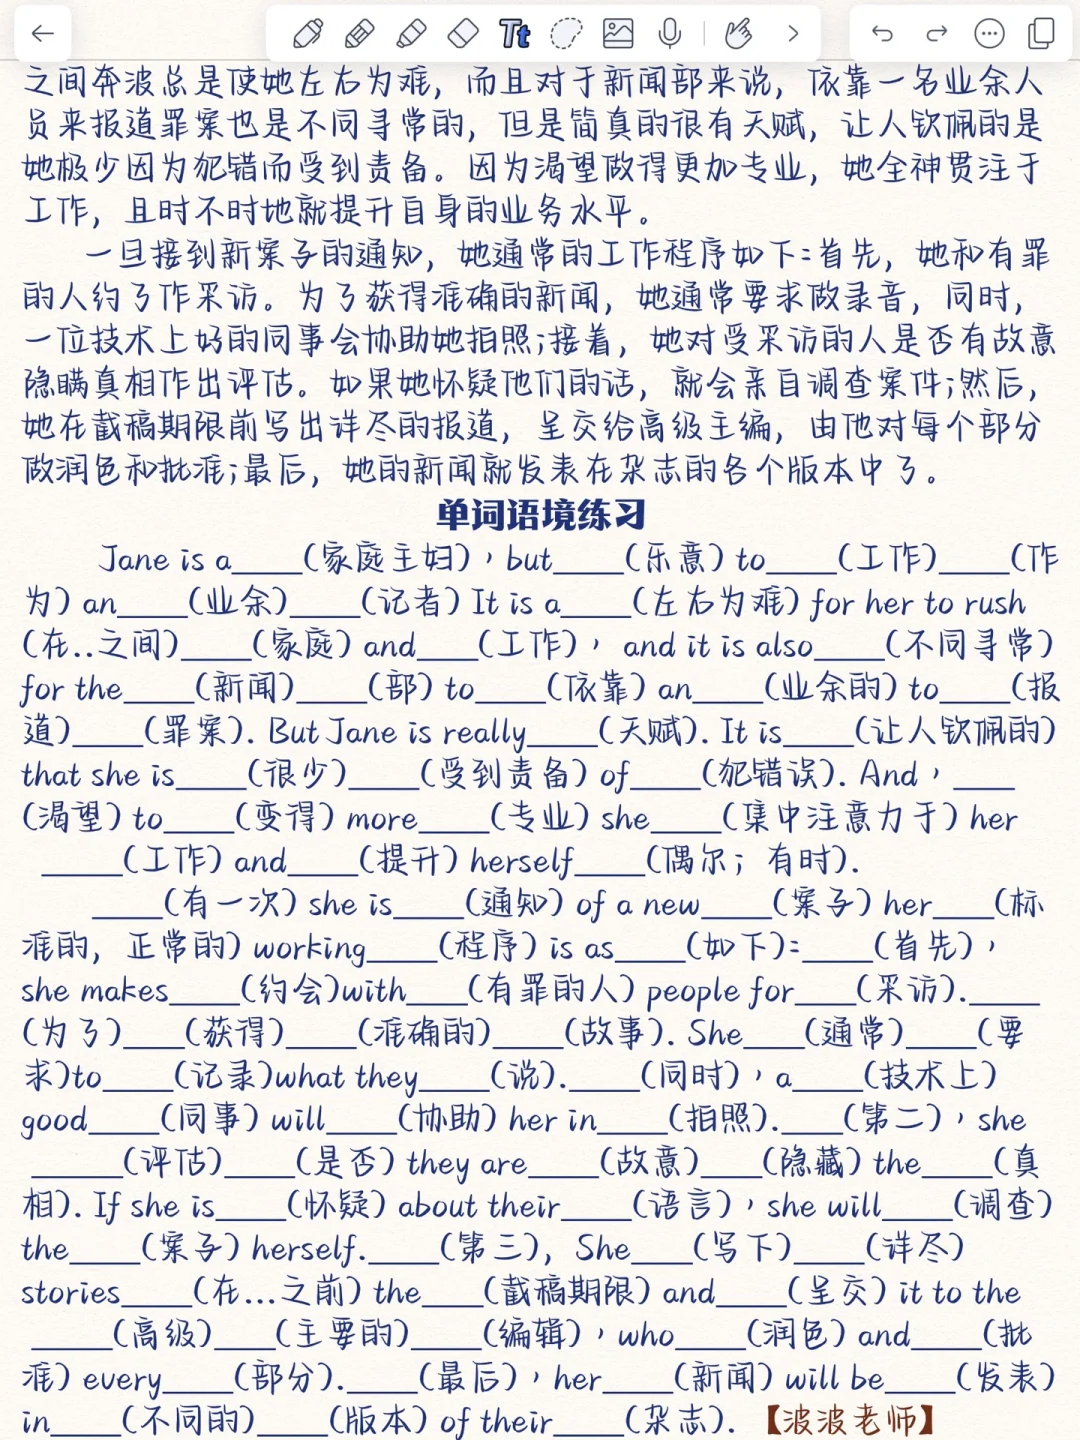 Tt
之间奔波总是使她左右为难，而且对于新闻部来说，依靠一名业余人
员来报道罪案也是不同寻常的，但是简真的很有天赋，让人钦佩的是
她极少因为犯错而受到责备。因为渴望做得更加专业，她全神贯注于
工作，且时不时地就提升自身的业务水平。
一旦接到新案子的通知，她通常的工作程序如下:首先，她和有罪
的人约了作采访。为了获得准确的新闻，她通常要求做录音，同时，
一位技术上好的同事会协助她拍照;接着，她对受采访的人是否有故意
隐瞒真相作出评估。如果她怀疑他们的话，就会亲自调查案件;然后，
她在截稿期限前写出详尽的报道，呈交给高级主编，由他对每个部分
做润色和批准;最后，她的新闻就发表在杂志的各个版本中了。
单词语境练习
Jane is a____(家庭主妇)，but____(乐意) to____(工作)____(作
为) an____(业余)____(记者) It is a____(左右为难) for her to rush
(在..之间)____(家庭) and____(工作)， and it is also____(不同寻常)
for the____(新闻)____(部) to____(依靠) an____(业余的) to____(报
道)____(罪案). But Jane is really____(天赋). It is____(让人钦佩的)
that she is____(很少)____(受到责备) of____(犯错误). And，____
(渴望) to____(变得) more____(专业) she____(集中注意力于) her
____(工作) and____(提升) herself____(偶尔；有时).
____(有一次) she is____(通知) of a new____(案子) her____(标
准的，正常的) working____(程序) is as____(如下):____(首先)，
she makes____(约会)with____(有罪的人) people for____(采访).____
(为了)____(获得)____(准确的)____(故事). She____(通常)____(要
求)to____(记录)what they____(说).____(同时)，a____(技术上)
good____(同事) will____(协助) her in____(拍照).____(第二)，she
____(评估)____(是否) they are____(故意)____(隐藏) the____(真
相). If she is____(怀疑) about their____(语言)，she will____(调查)
the____(案子) herself.____(第三)，She____(写下)____(详尽)
stories____(在...之前) the____(截稿期限) and____(呈交) it to the
____(高级)____(主要的)____(编辑)，who____(润色) and____(批
准) every____(部分).____(最后)，her____(新闻) will be____(发表)
in____(不同的)____(版本) of their____(杂志). 【波波老师】